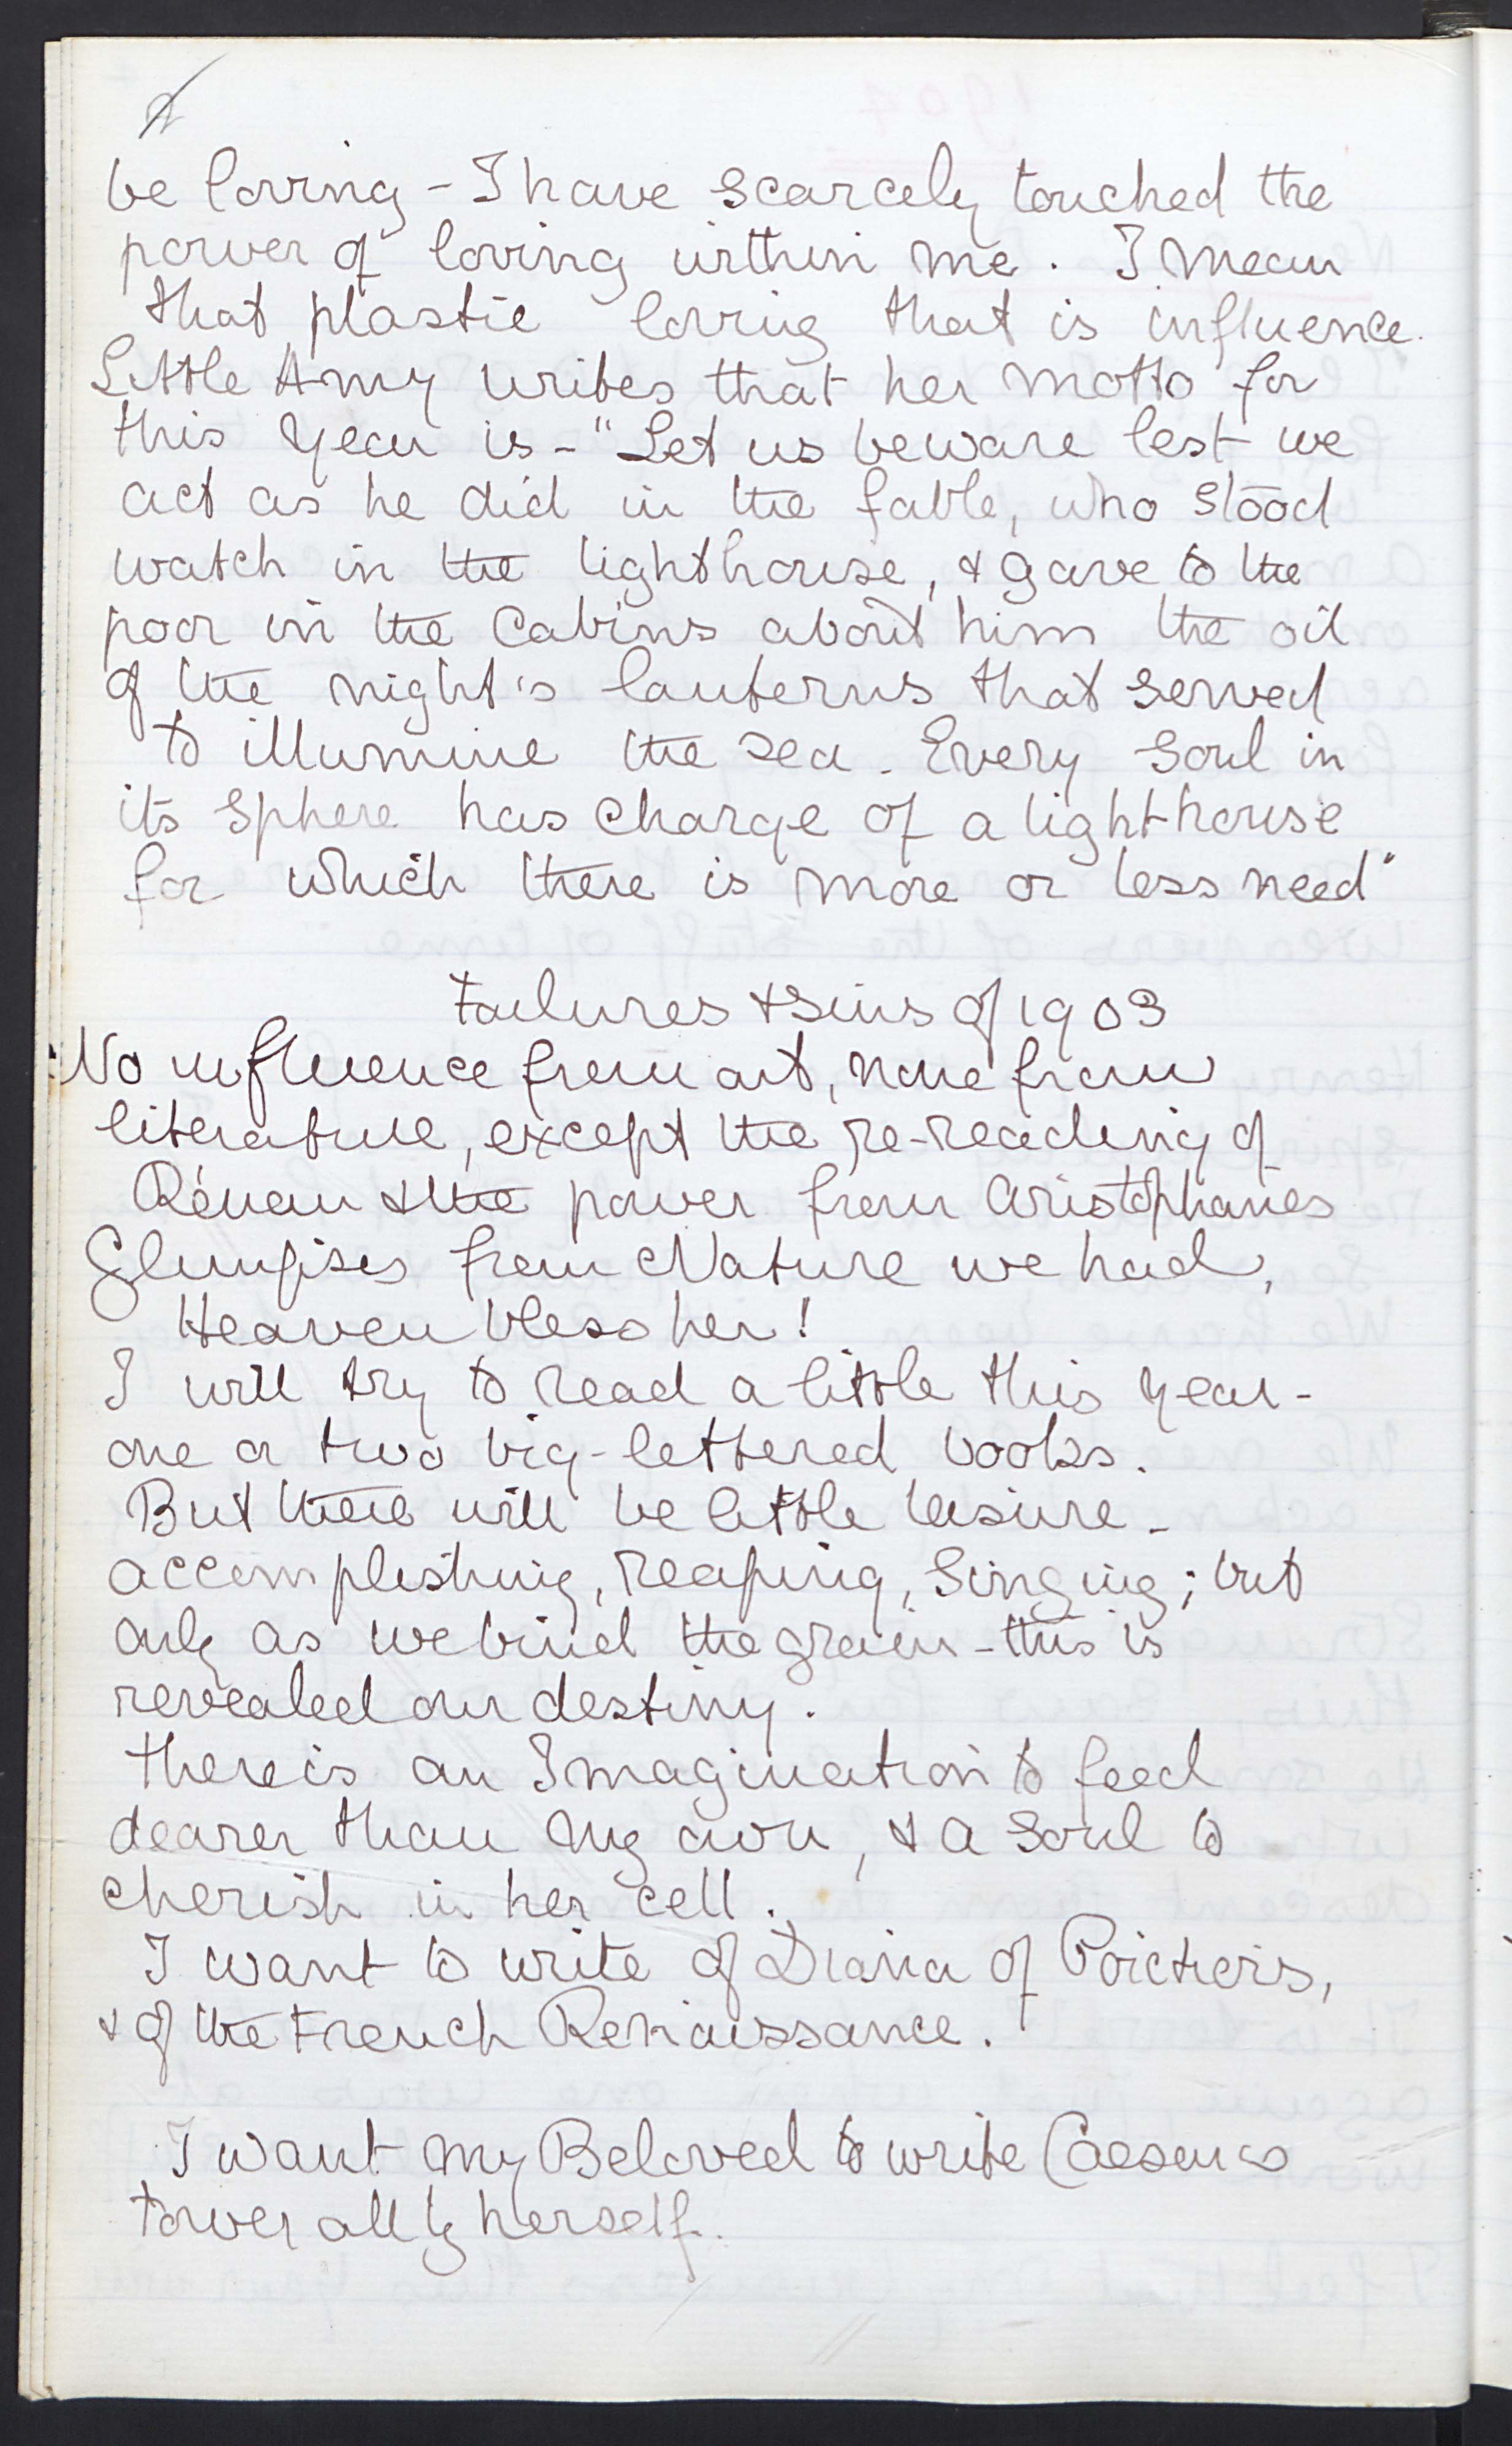 be loving - I have scarcely touched the
power of loving within me. I mean
that plastic loving that is influence.
Little Amy writes that her motto for
this year is - "Let us beware lest we
act as he did in the fable, who stood
watch in the lighthouse, & gave to the
poor in the cabins about him the oil
of the night's lanterns that served
to illumine the sea. Every soul in
its sphere has charge of a light-house
for which there is more or less need"
Failures & sins of 1903
No influence from art, none from
literature, except the re-reading of
Rénan & the power from Aristophanes
Glimpses from Nature we had,
Heaven bless her!
I will try to read a little this year -
one or two big-lettered books.
But there will be little leisure -
accomplishing, reaping, singing; but
only as we bind the grain - this is
revealed our destiny.
There is an Imagination to feed
dearer than my own, & a soul to
cherish in her cell.
I want to write of Diana of Poictiers,
& of the French Renaissance.
I want my Beloved to write Caesar's
tower all by herself.